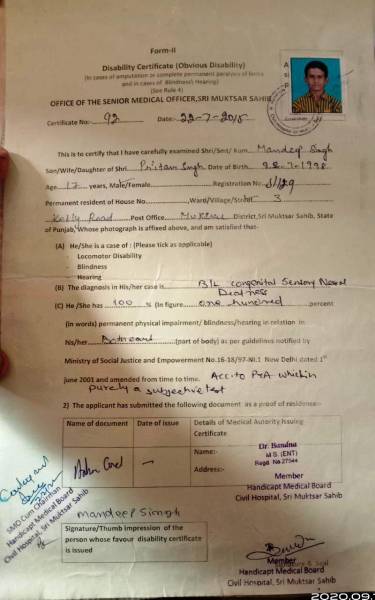 Form-II
Disability Certificate (Obvious Disability)
(In cases of amputation or complete permanent paralysis of limbs
and in cases of Blindness/Hearing)
(See Rule 4)
OFFICE OF THE SENIOR MEDICAL OFFICER, SRI MUKTSAR SAHIB
Certificate No:- 92 Date:- 22-7-2015
This is to certify that I have carefully examined Shri/Smt/Kum. Mandeep Singh
Son/Wife/Daughter of Shri. Pritam Singh Date of Birth 28-7-1998
Age 17 years, Male/Female Registration No. S/129
Permanent resident of House No. Ward/Village/Street 3
Kotly Road Post Office. Muktsar District, Sri Muktsar Sahib, State
of Punjab, Whose photograph is affixed above, and am satisfied that-
(A) He/She is a case of : (Please tick as applicable)
- Locomotor Disability
- Blindness
- Hearing
(B) The diagnosis in His/her case is B/L congenital Sensory Neural
Deafness
(C) He /She has 100 % (In figure one hundred percent
(in words) permanent physical impairment/ blindness/hearing in relation in
his/her Both ears (part of body) as per guidelines notified by
Ministry of Social Justice and Empowerment No.16-18/97-NI.1 New Delhi dated 1st
june 2001 and amended from time to time. Acc. to PTA which is
purely a subjective test
2) The applicant has submitted the following document as a proof of residence:-
Name of document Date of issue Details of Medical Autority Issuing
Certificate
Adhar Card — Name:- Dr. Bandna
M.S. (ENT)
Regd. No.27544
Address:-
Member
Handicapt Medical Board
Civil Hospital, Sri Muktsar Sahib
SMO Cum Chairman
Handicapt Medical Board
Civil Hospital, Sri Muktsar Sahib
mandeep Singh
Signature/Thumb impression of the
person whose favour disability certificate
is issued
Member
Handicapt Medical Board
Civil Hospital, Sri Muktsar Sahib